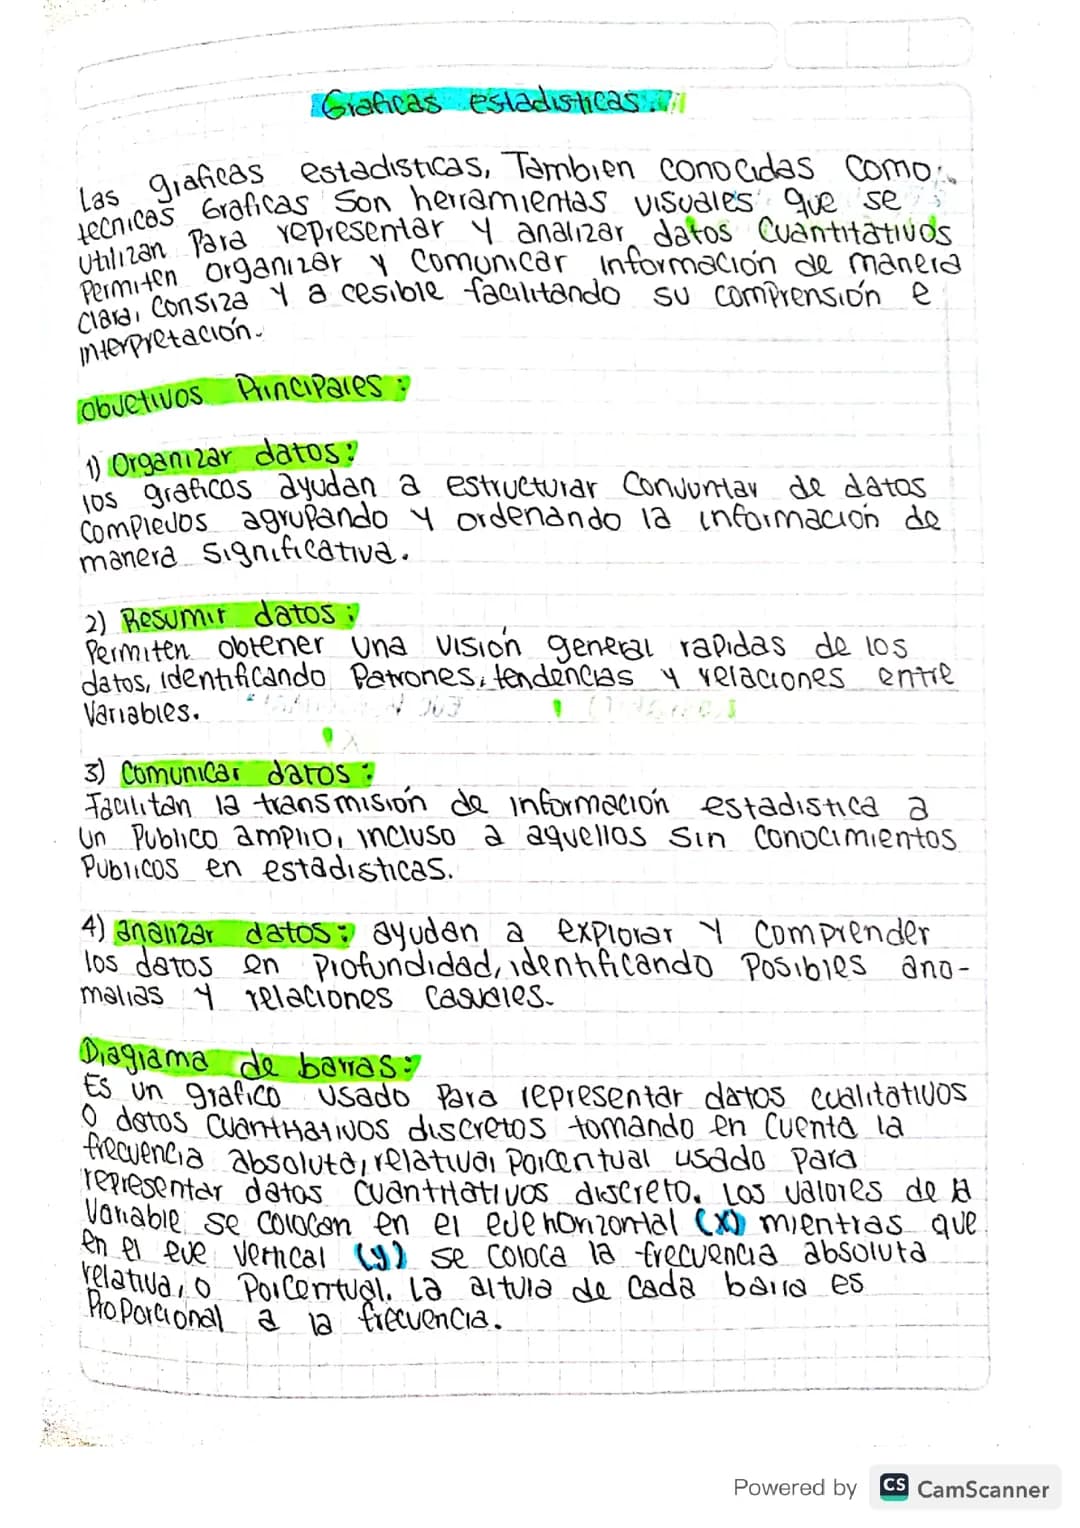 Graficas estadisticas.
Las graficas estadisticas, Tambien conocidas como
tecnicas Graficas Son herramientas visuales que se
utilizan Para representar y analizar datos Cuantitativos
Permiten organizar y Comunicar información de manera
clara, Consiza y a cesible facilitando su comprensión e
interpretación.
objetivos Principales:
1) Organizar datos:
los graficos ayudan a estructurar Conjuntar de datos
Complejos agrupando y ordenando la información de
manera significativa.
2) Resumir datos:
Permiten obtener una visión general rapidas de los
datos, identificando Patrones, tendencias y relaciones entre
Variables.
3) Comunicar datos:
Facilitan la transmisión de información estadistica a
un Publico amplio, incluso a aquellos sin conocimientos
Publicos en estadisticas.
4) analizar datos: ayudan a explorar y comprender
los datos en profundidad, identificando Posibles ano-
malias y relaciones casuales.
Diagrama de barras:
Es un grafico usado Para representar datos cualitativos
O datos Cuantitativos discretos tomando en Cuenta la
frecuencia absoluta, relativa, Porcentual usado para
representar datos cuantitativos discreto. Los valores de la
Variable se colocan en el eje horizontal (x) mientras que
en el eje vertical (y) se coloca la frecuencia absoluta
relativa, o Porcentual. La altura de cada barra es
Proporcional a la frecuencia.
Powered by CS CamScanner